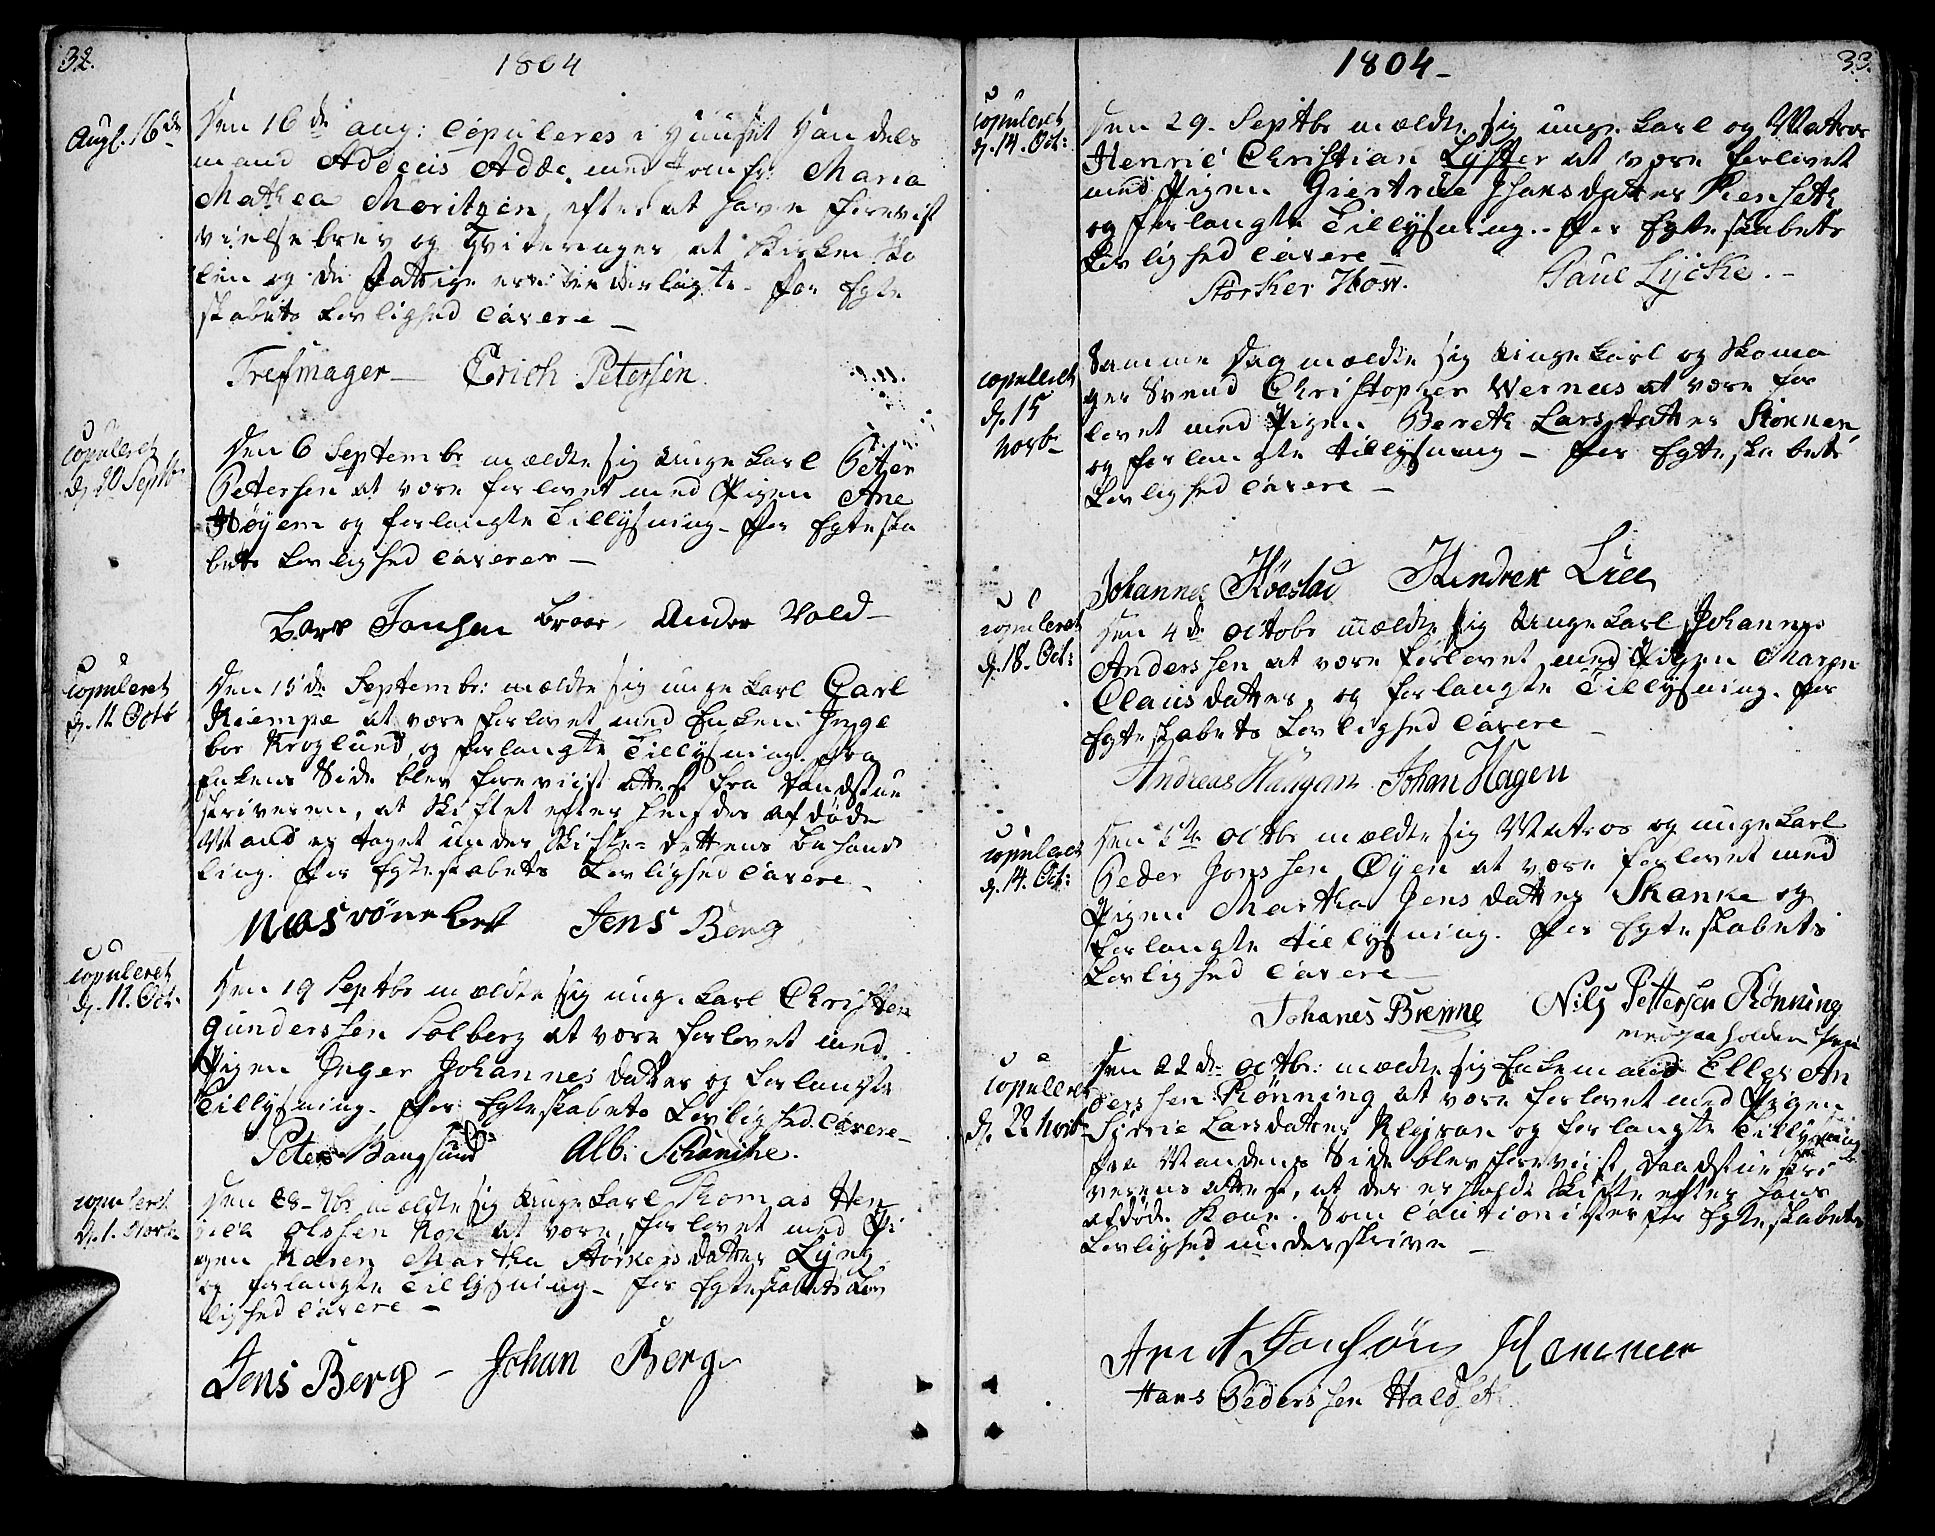 32.
1804
Augl. 16de
Den 16de aug: Copuleres i Huuset Handels
mand Addeus Adde, med Jomfr: Maria
Mathea Moritzen, efter at have forevist
vielsebrev og Qviteringer, at Kirken Sko
len og de Fattige ere vederlagte. For Egte
skabets Lovlighed Cavere –
Trefmager – Erich Petersen
copuleret
d. 20 Septb
Den 6 Septembr mældte sig Ungekarl Peter
Petersen at være forlovet med Pigen Ane
Høyem og forlangte Tillysning – for Egteska
bets Lovlighed Caverer –
Lars Jonsen Andor Vold –
copuleret
d. 11. Octb
Den 15de Septembr: mældte sig ungekarl Carl
Kiempe at være forlovet med Enken Inge
bor Kroglund og forlangte Tillysning. fra
Enkens Side blev foreviist attest fra Landstue
skriveren, at Skiftet efter hendes afdøde
Mand er taget under Skifte-Rettens behand
ling. for Egteskabets Lovlighed Cavere –
Jens Berg
copuleret
d. 11. Oct.
Den 19 Septbr mældte sig ungekarl Christen
Gunderssen Solberg at være forlovet med
Pigen Inger Johannesdatter og forlangte
Tillysning. for Egteskabets Lovlighed Cavere –
Peter Bangsund Alb: Schanche.
copuleret
d. 1. Novb.
Den 28 – 7br mældte sig Ungekarl Thomas Hen
olssen at være forlovet med Pi
gen Karen Martha Størkersdatter Lyng
og forlangte Tillysning – for Egteskabets Lov
lighed Cavere –
Jens Berg – Johan Berg
33.
1804 –
copuleret
d. 14. Oct:
Den 29. Septbr mældte sig ungekarl og Matros
Henric Christian Lyster at være forlovet
med Pigen Giertrue Ihansdatter Renseth
og forlangte Tillysning. For Egteskabets
Lovlighed Cavere –
Størker How. Paul Lycke. –
copuleret
d. 15
Novb –
Samme Dag mældte sig Ungekarl og Skoma
ger Svend Christopher Wernees at være for
lovet med Pigen Bereth Larsdatter Stønnen
og forlangte tillysning – for Egteskabets
Lovlighed Cavere –
Johannes Høestad Hendrek Lien
copuleret
d. 18. Oct:
Den 4de octobr mældte sig Ungekarl Johannes
Anderssen at være forlovet med Pigen Maren
Clausdatter, og forlangte Tillysning. for
Egteskabets Lovlighed Cavere –
Andreas Haugan Johan Hagen
copuleret
d. 14. Oct:
Den 5te octbr mældte sig Matros og ungekarl
Peder Jonssen Øyen at være forlovet med
Pigen Martha Jensdatter Skanke og
forlangte tillysning. for Egteskabets
Lovlighed Cavere –
Johanes Brenne Nils Pettersen Rønning
med paaholden Pen
copuleret
d. 22 Novb
Den 22de octbr: mældte sig Enkemand Elles An
derssen Rønning at være forlovet med Pigen
Larsdatter og forlangte Tillysning
fra Mandens Side blev foreviist Landstueskri
verens attest, at der er holdt Skifte efter hans
afdøde Kone. Som Cautionister for Egteskabets
Lovlighed underskrive –
Arnt Jonsøn Hemmer
Hans Pederssen Haldset